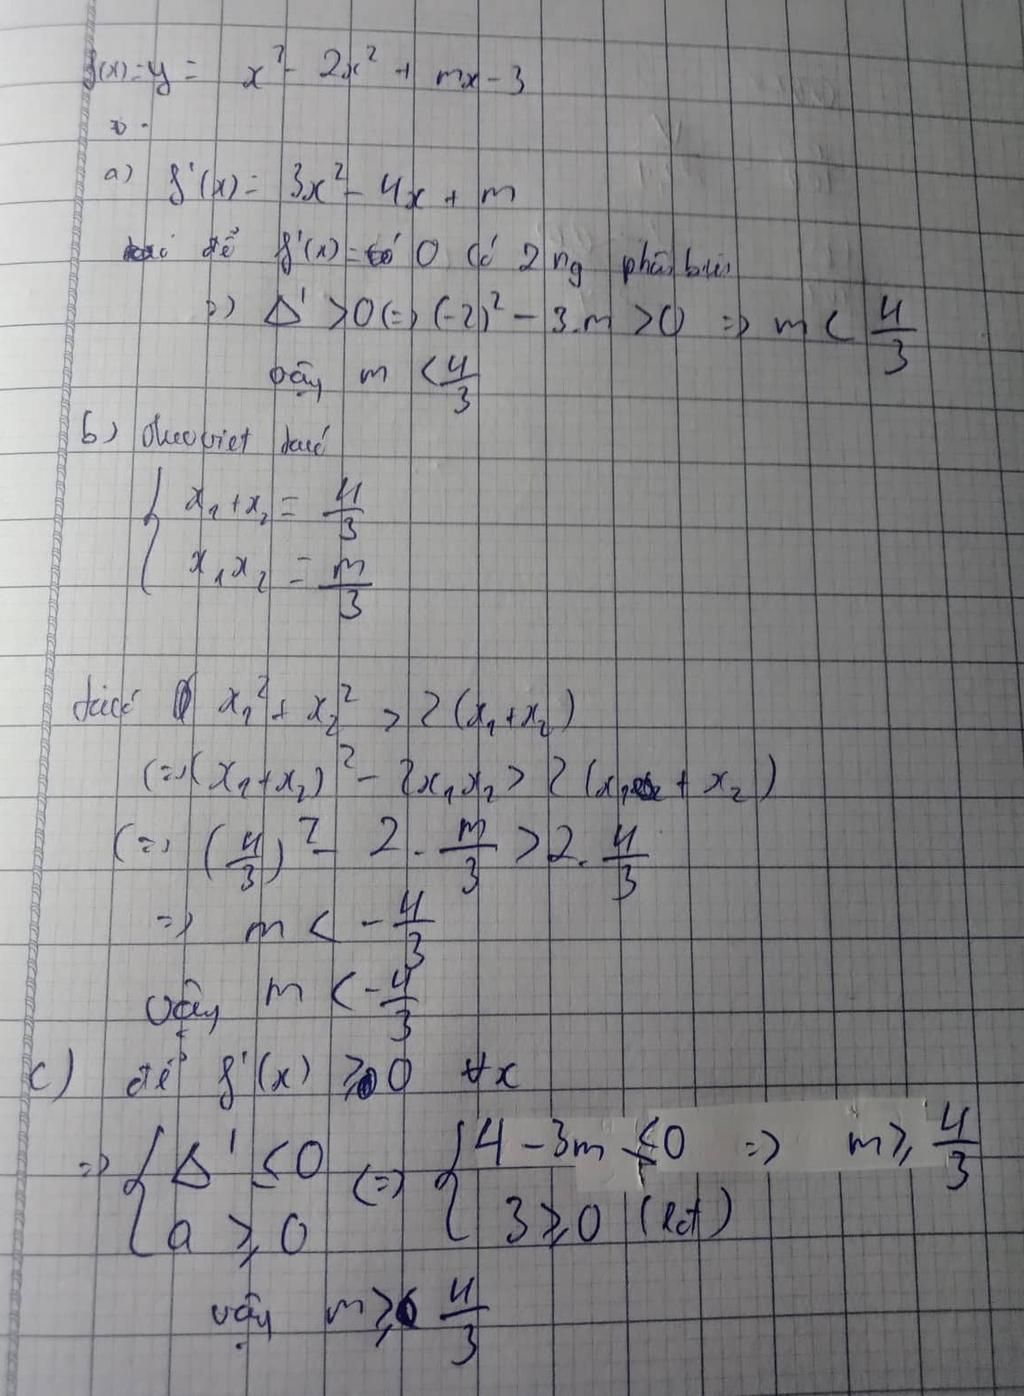 f(x)=y = x³ - 2x² + mx - 3
a) f'(x) = 3x² - 4x + m
để f'(x) = 0 có 2 ng phân biệt
=> Δ' > 0 (=) (-2)² - 3.m > 0 => m < 4/3
vậy m < 4/3
b) theo viet ta có
{ x₁ + x₂ = 4/3
x₁x₂ = m/3
ta có x₁² + x₂² > 2(x₁+x₂)
(=) (x₁+x₂)² - 2x₁x₂ > 2(x₁ + x₂)
(=) (4/3)² - 2 . m/3 > 2. 4/3
=> m < -4/3
vậy m < -4/3
c) để f'(x) ⩾ 0 ∀x
=> { Δ' ≤ 0 (=) { 4 - 3m ≤ 0 => m ⩾ 4/3
a ⩾ 0 3 ⩾ 0 (lđ)
vậy m ⩾ 4/3